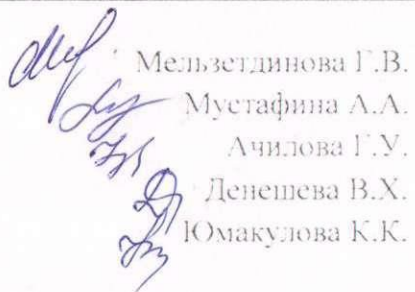 Мельзетдинова Г.В.
Мустафина А.А.
Ачилова Г.У.
Денешева В.Х.
Юмакулова К.К.